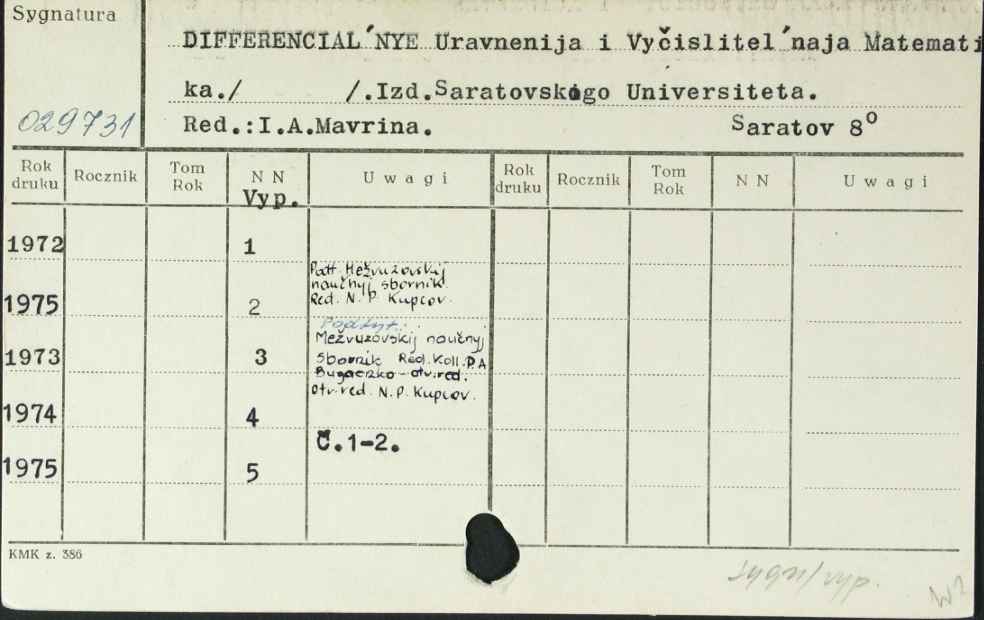 Sygnatura
DIFFERENCIAL´NYE Uravnenija i Vyčislitel´naja Matemati
ka./ /.Izd.Saratovskogo Universiteta.
029731
Red.:I.A.Mavrina. Saratov 8º
Rok druku Rocznik Tom Rok N N U w a g i Rok druku Rocznik Tom Rok N N U w a g i
Vyp.
1972 1
Patt. Mežvuzovskij
naučnyj sbornik.
Red. N. P. Kupcov.
1975 2
Podtyt.:
Mežvuzovskij naučnyj
1973 3 Sbornik Red. Koll. P.A
Bugaczko - otv.red.
otv.red. N.P. Kupcov.
1974 4
Č.1-2.
1975 5
KMK z. 386
W2